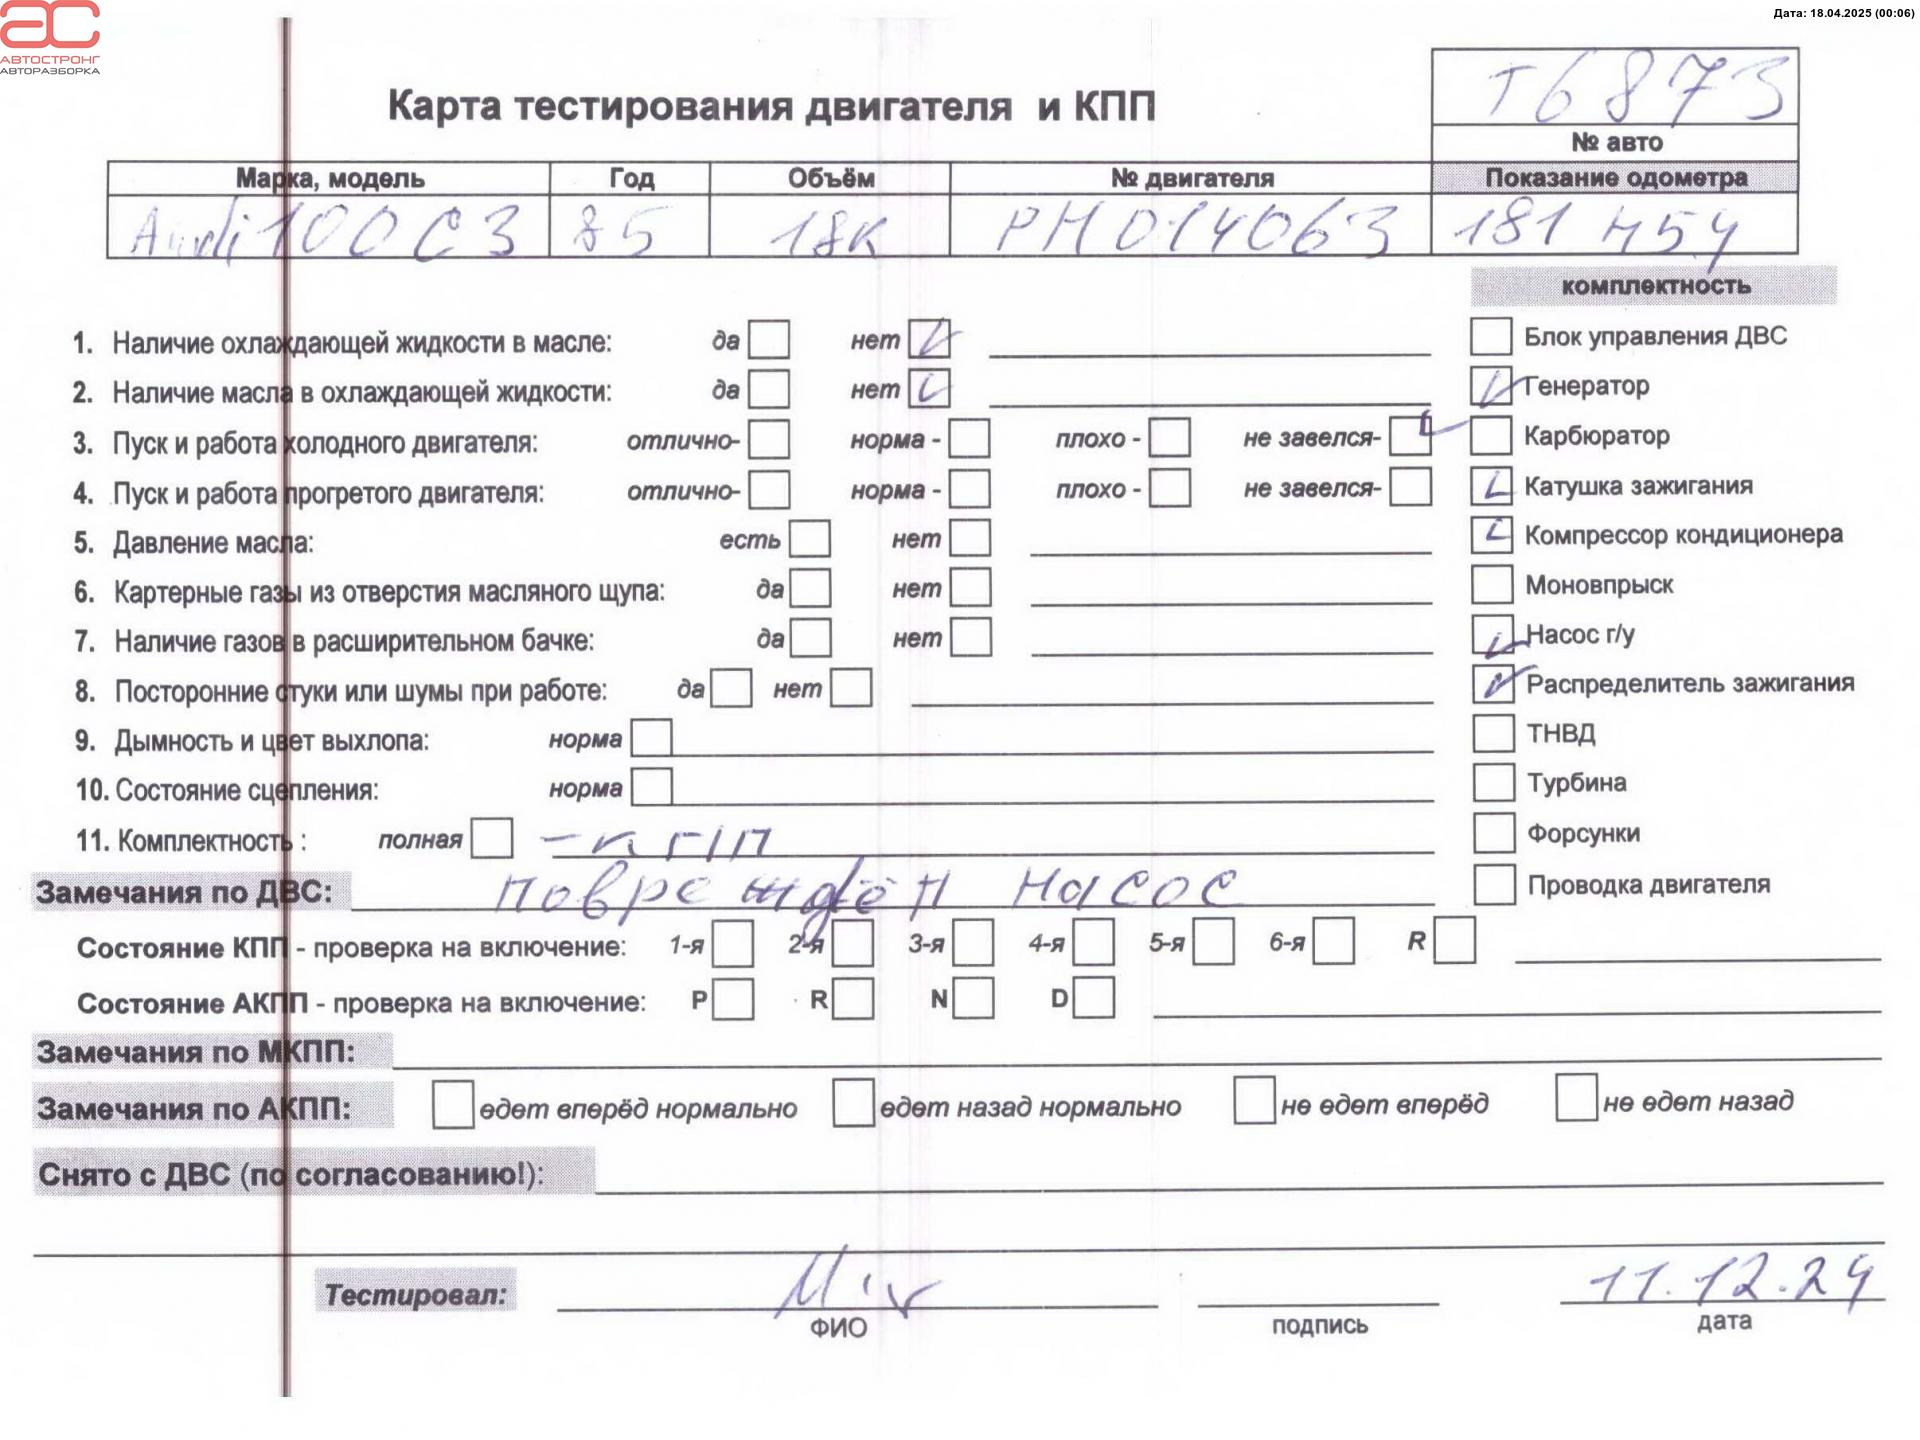 Дата: 18.04.2025 (00:06)
АВТОСТРОНГ
АВТОРАЗБОРКА
Т6873
Карта тестирования двигателя и КПП
№ авто
Марка, модель Год Объём № двигателя Показание одометра
Audi 100 C3 85 18к PH014063 181 454
комплектность
1. Наличие охлаждающей жидкости в масле: да нет
Блок управления ДВС
2. Наличие масла в охлаждающей жидкости: да нет
Генератор
3. Пуск и работа холодного двигателя: отлично- норма - плохо - не завелся-
Карбюратор
4. Пуск и работа прогретого двигателя: отлично- норма - плохо - не завелся-
Катушка зажигания
5. Давление масла: есть нет
Компрессор кондиционера
6. Картерные газы из отверстия масляного щупа: да нет
Моновпрыск
7. Наличие газов в расширительном бачке: да нет
Насос г/у
8. Посторонние стуки или шумы при работе: да нет
Распределитель зажигания
9. Дымность и цвет выхлопа: норма
ТНВД
10. Состояние сцепления: норма
Турбина
11. Комплектность : полная
Форсунки
Замечания по ДВС: повреждён насос
Проводка двигателя
Состояние КПП - проверка на включение: 1-я 2-я 3-я 4-я 5-я 6-я R
Состояние АКПП - проверка на включение: P R N D
Замечания по МКПП:
Замечания по АКПП: едет вперёд нормально едет назад нормально не едет вперёд не едет назад
Снято с ДВС (по согласованию!):
Тестировал: 11.12.24
ФИО подпись дата